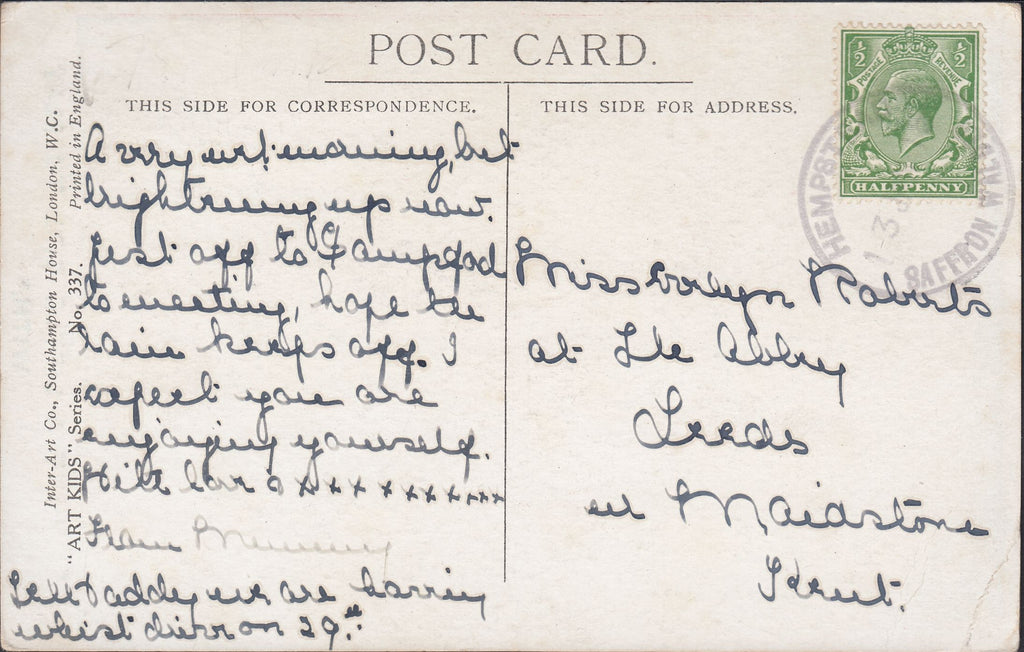 POST CARD.
THIS SIDE FOR CORRESPONDENCE.
THIS SIDE FOR ADDRESS.
Inter-Art Co., Southampton House, London, W.C.
"ART KIDS" Series. No. 337. Printed in England.
A very wet morning, but
brightening up now.
Just off to
to meeting, hope the
rain keeps off. I
expect you are
enjoying yourself.
With love o x x x x x x x x x x
From Mummy
Tell Daddy we are having
whist drive on 29th
½ ½
POSTAGE REVENUE
HALFPENNY
HEMPST
SAFFRON WAL
Miss Evelyn Roberts
at The Abbey
Leeds
nr Maidstone
Kent.